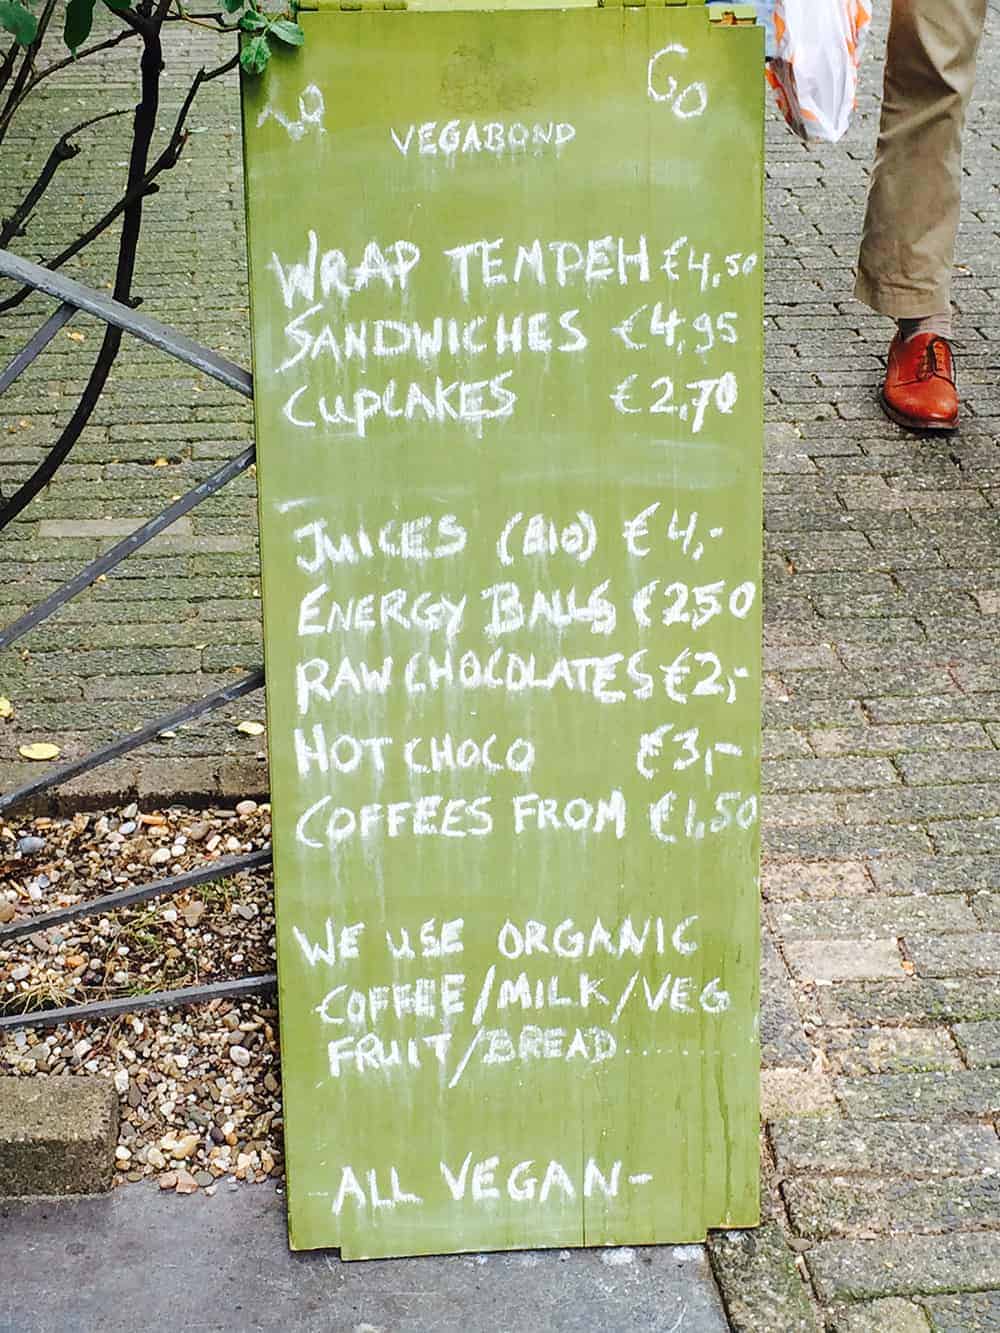 TO GO
VEGABOND
WRAP TEMPEH €4,50
SANDWICHES €4,95
CUPCAKES €2,70
JUICES (BIO) €4,-
ENERGY BALLS €2,50
RAW CHOCOLATES €2,-
HOT CHOCO €3,-
COFFEES FROM €1,50
WE USE ORGANIC
COFFEE/MILK/VEG
FRUIT/BREAD.......
-ALL VEGAN-